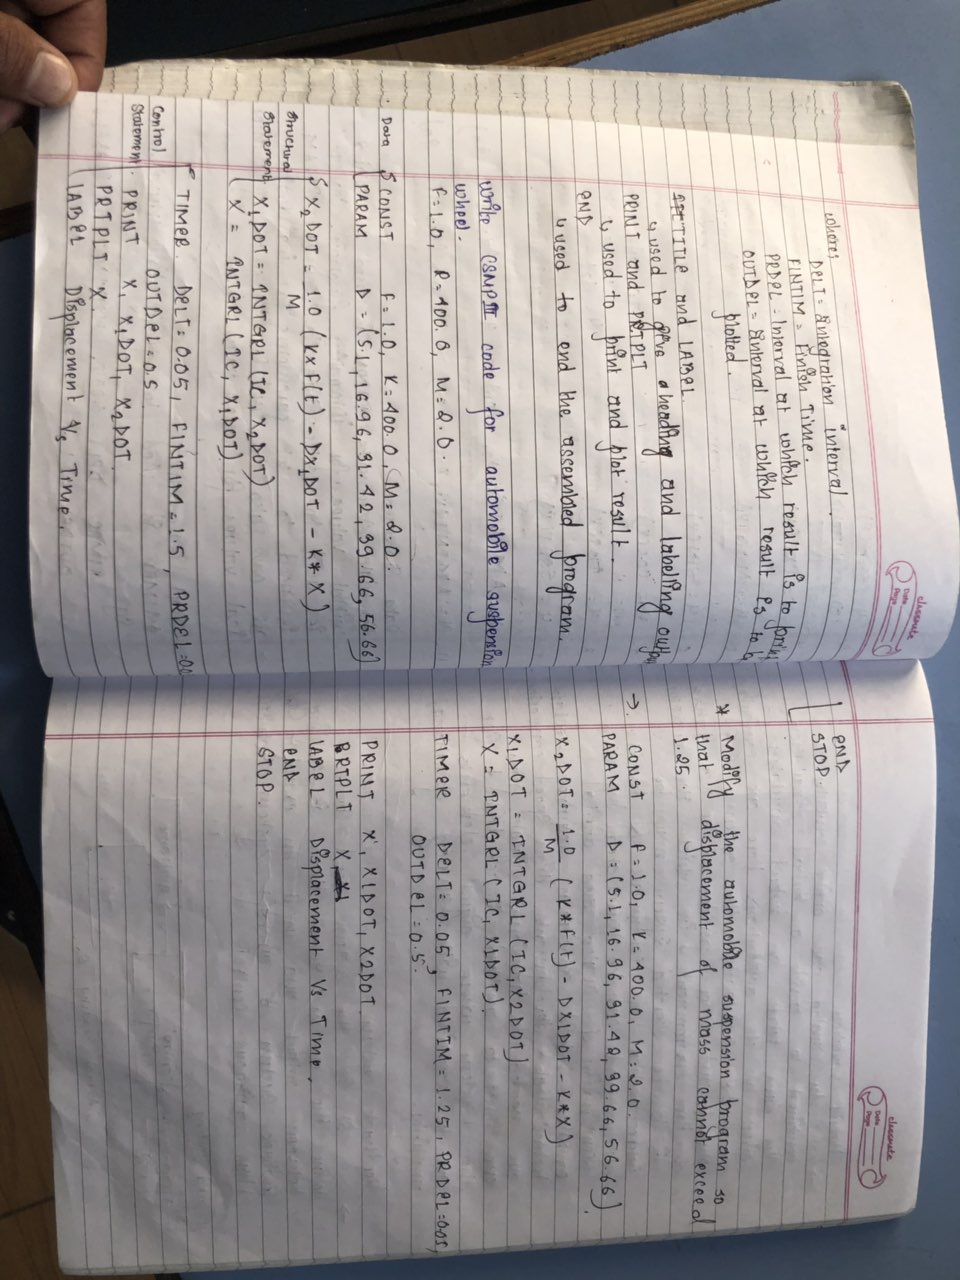 classmate
Date
Page
where,
DELT = integration interval.
FINTIM = Finish Time.
PRDEL = Interval at which result is to print
OUTDEL = interval at which result is to b
plotted.
TITLE and LABEL
↳ used to give a heading and labelling outpu
PRINT and PRTPLT
↳ used to print and plot result.
END
↳ used to end the assembled program.
write CSMP III code for automobile suspension
wheel.
F=1.0, K=400.0, M=2.0.
Data { CONST F=1.0, K=400.0, M=2.0.
PARAM D = (5.1, 16.96, 31.42, 39.66, 56.66)
Structural
Statement
{ X2DOT = 1.0/M (K*F(t) - DX1DOT - K*X)
X1DOT = INTGRL (IC, X2DOT)
X = INTGRL (IC, X1DOT)
Control
Statement.
TIMER DELT=0.05, FINTIM=1.5, PRDEL=0.0
OUTDEL=0.5
PRINT X, X1DOT, X2DOT
PRTPLT X.
LABEL Displacement V/s Time.
classmate
Date
Page
END
STOP.
* Modify the automobile suspension program so
that displacement of mass cannot exceed
1.25.
→ CONST F=1.0, K=400.0, M=2.0.
PARAM D=(5.1, 16.96, 31.42, 39.66, 56.66)
X2DOT = 1.0/M (K*F(t) - DX1DOT - K*X)
X1DOT = INTGRL (IC, X2DOT)
X = INTGRL (IC, X1DOT).
TIMER DELT=0.05, FINTIM=1.25, PRDEL=0.05,
OUTDEL=0.5.
PRINT X, X1DOT, X2DOT
PRTPLT X
LABEL Displacement Vs Time.
END
STOP.